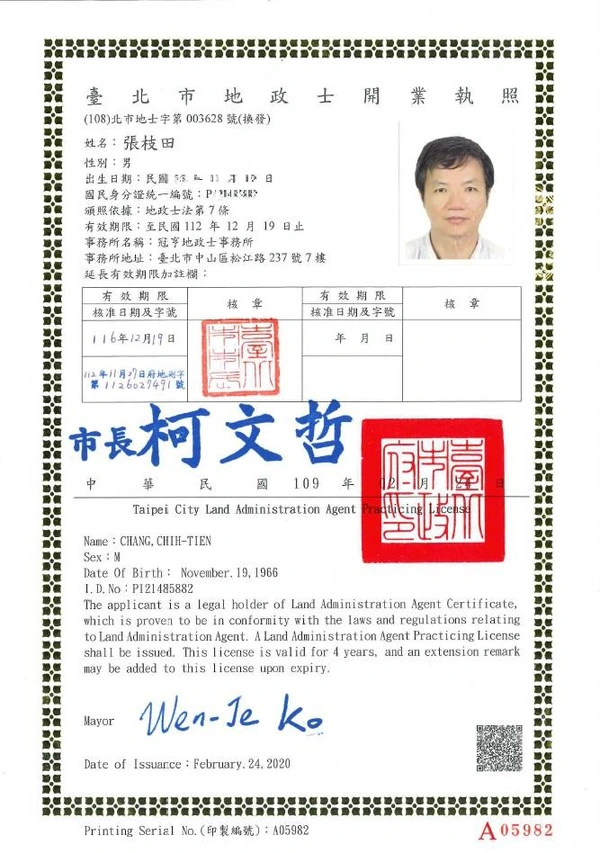 臺北市地政士開業執照
(108)北市地士字第 003628 號(換發)
姓名：張枝田
性別：男
出生日期：民國 年 11 月 19 日
國民身分證統一編號：
頒照依據：地政士法第 7 條
有效期限：至民國 112 年 12 月 19 日止
事務所名稱：冠亨地政士事務所
事務所地址：臺北市中山區松江路 237 號 7 樓
延長有效期限加註欄：
有效期限 核章 有效期限 核章
核准日期及字號 核准日期及字號
116年12月19日 年 月 日
112年11月27日府地測字
第1126027491號
市長 柯文哲
臺北市政府印
中 華 民 國 109 年 02 月 24 日
Taipei City Land Administration Agent Practicing License
Name：CHANG,CHIH-TIEN
Sex：M
Date Of Birth： November.19,1966
I.D.No：P121485882
The applicant is a legal holder of Land Administration Agent Certificate,
which is proven to be in conformity with the laws and regulations relating
to Land Administration Agent. A Land Administration Agent Practicing License
shall be issued. This license is valid for 4 years, and an extension remark
may be added to this license upon expiry.
Mayor Wen-Je Ko
Date of Issuance：February.24,2020
Printing Serial No.(印製編號)：A05982
A05982